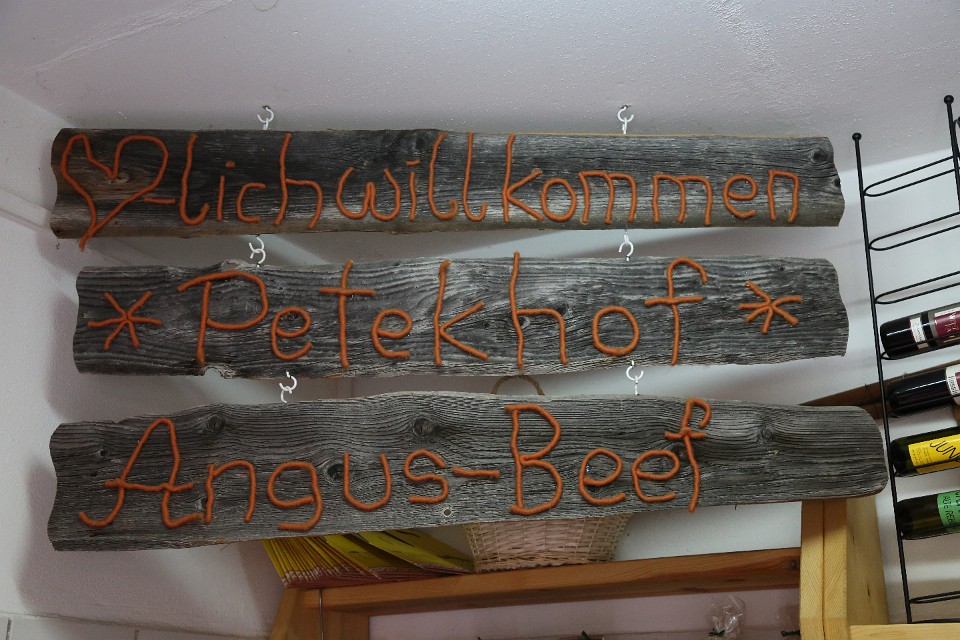 ♡-lich willkommen
* Petekhof *
Angus-Beef
JUN